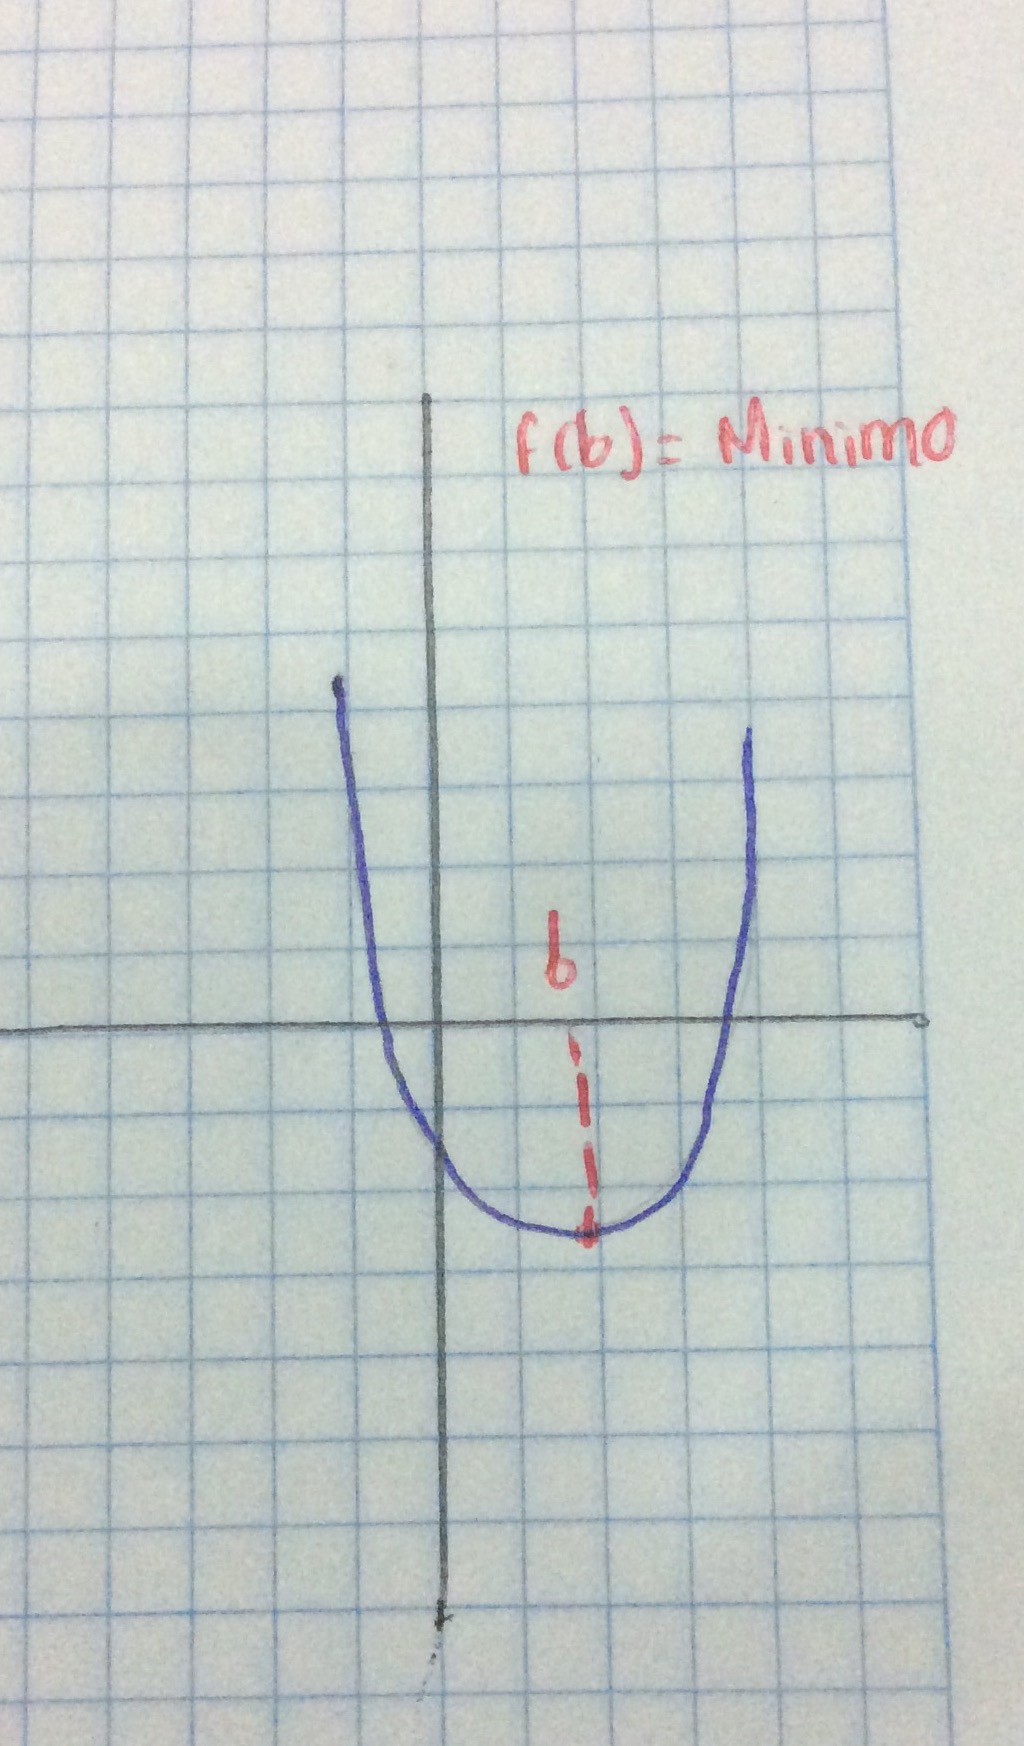 f(b) = Minimo
b